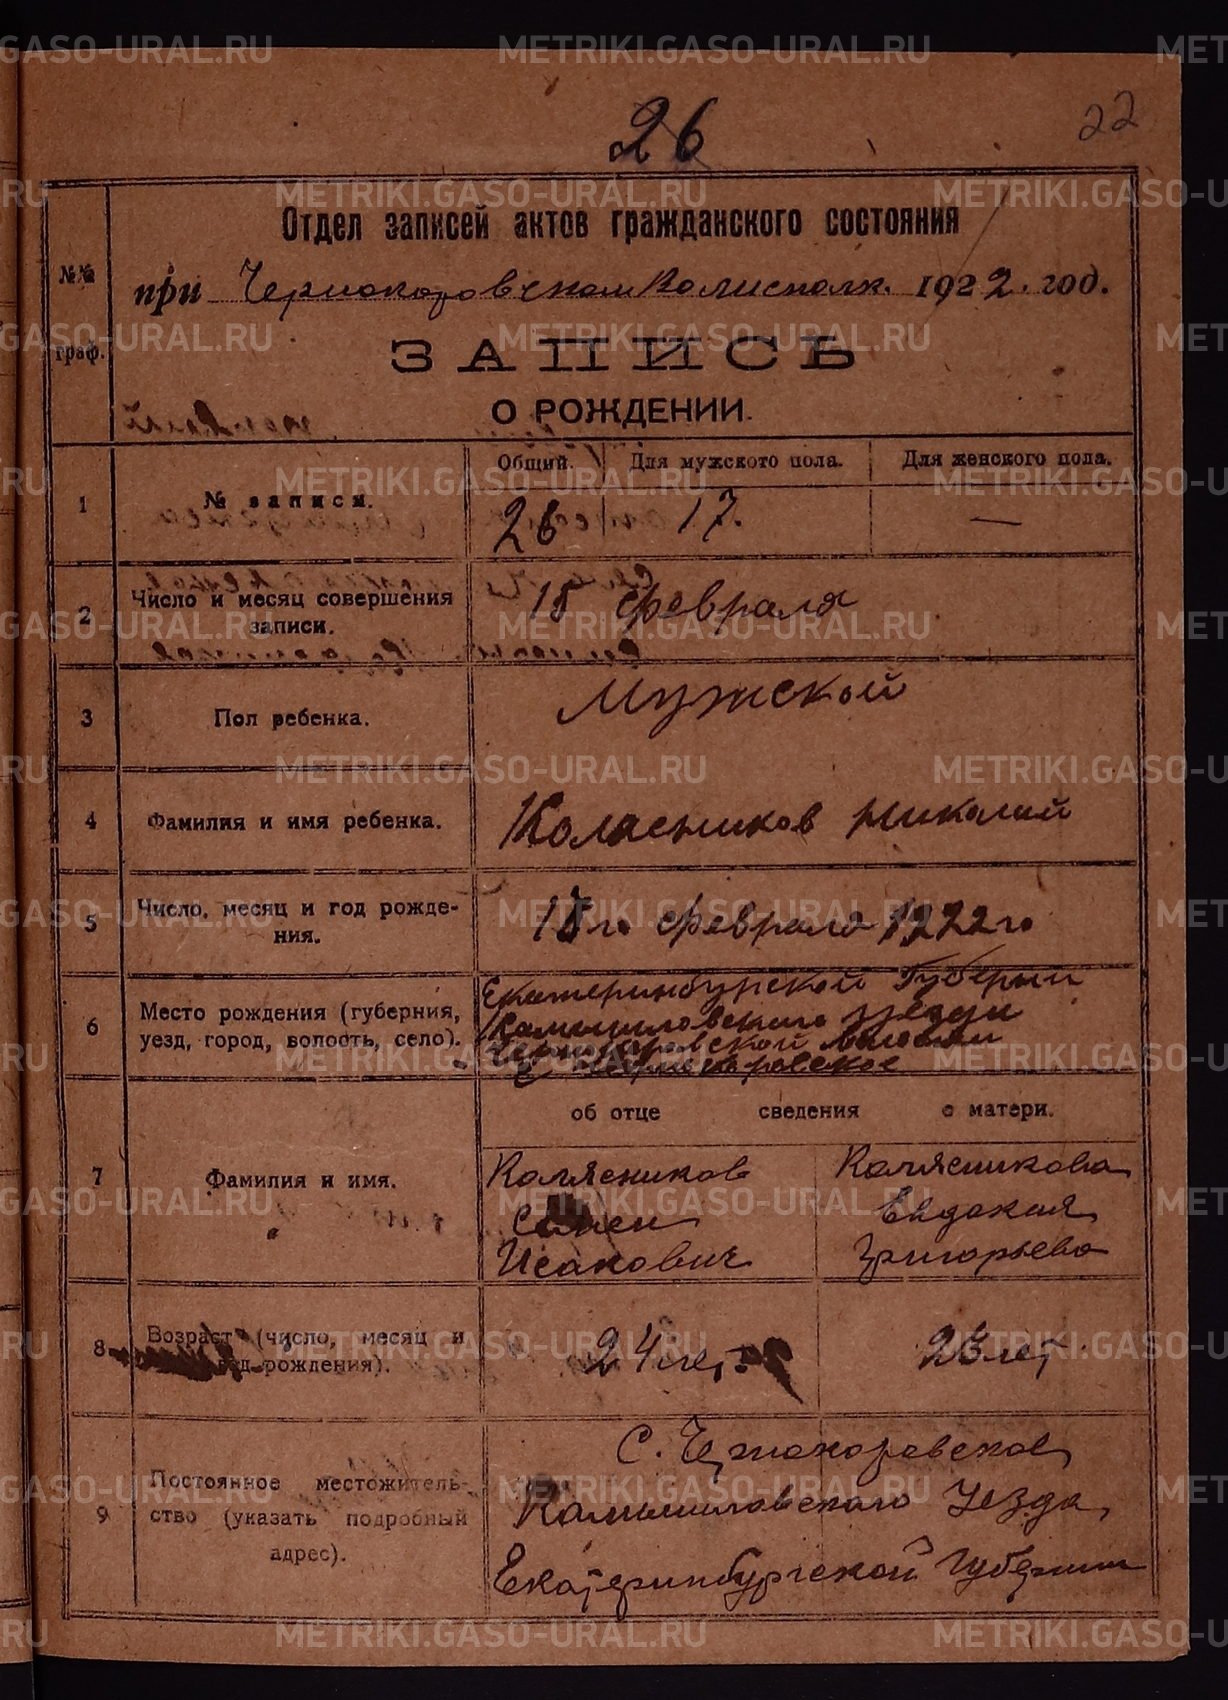 26
22
Отдел записей актов гражданского состояния
при Чернокоровском Волисполк. 1922. год.
№№ граф.
ЗАПИСЬ
О РОЖДЕНИИ.
Общий. Для мужского пола. Для женского пола.
1 № записи. 26 17. —
2 Число и месяц совершения
записи.
15 февраля
3 Пол ребенка. Мужской
4 Фамилия и имя ребенка. Колясников Николай
5 Число, месяц и год рожде-
ния.
15го февраля 1922го
6 Место рождения (губерния,
уезд, город, волость, село).
Екатеринбурской Губернии
Камышловского уезда
Чернокоровской волости
С Чернокоровское
об отце сведения о матери.
7 Фамилия и имя.
Колясников Колясникова
Семен Евдокия
Исакович Григорьева
8 Возраст (число, месяц и
год рождения).
24 лет. 23 лет
9 Постоянное местожитель-
ство (указать подробный
адрес).
С. Чернокоровское
Камышловского Уезда,
Екатеринбургской Губернии
METRIKI.GASO-URAL.RU